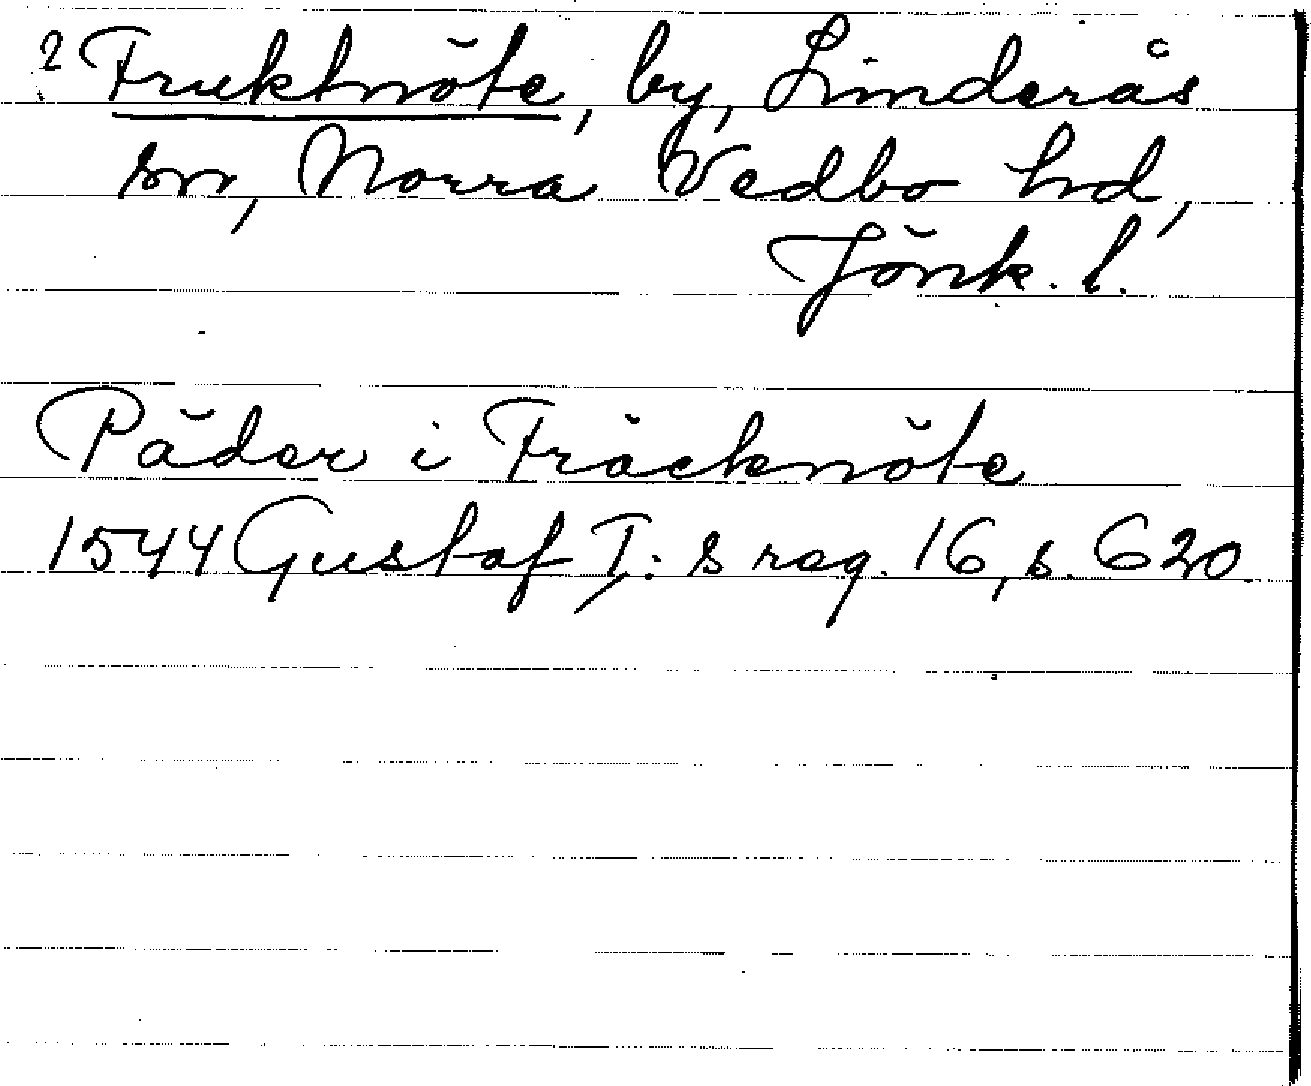 2 Fruktnöte, by, Linderås
sn, Norra Vedbo hd,
Jönk. l.
Päder i Fräcknöte
1544 Gustaf I:s reg. 16, s. 620